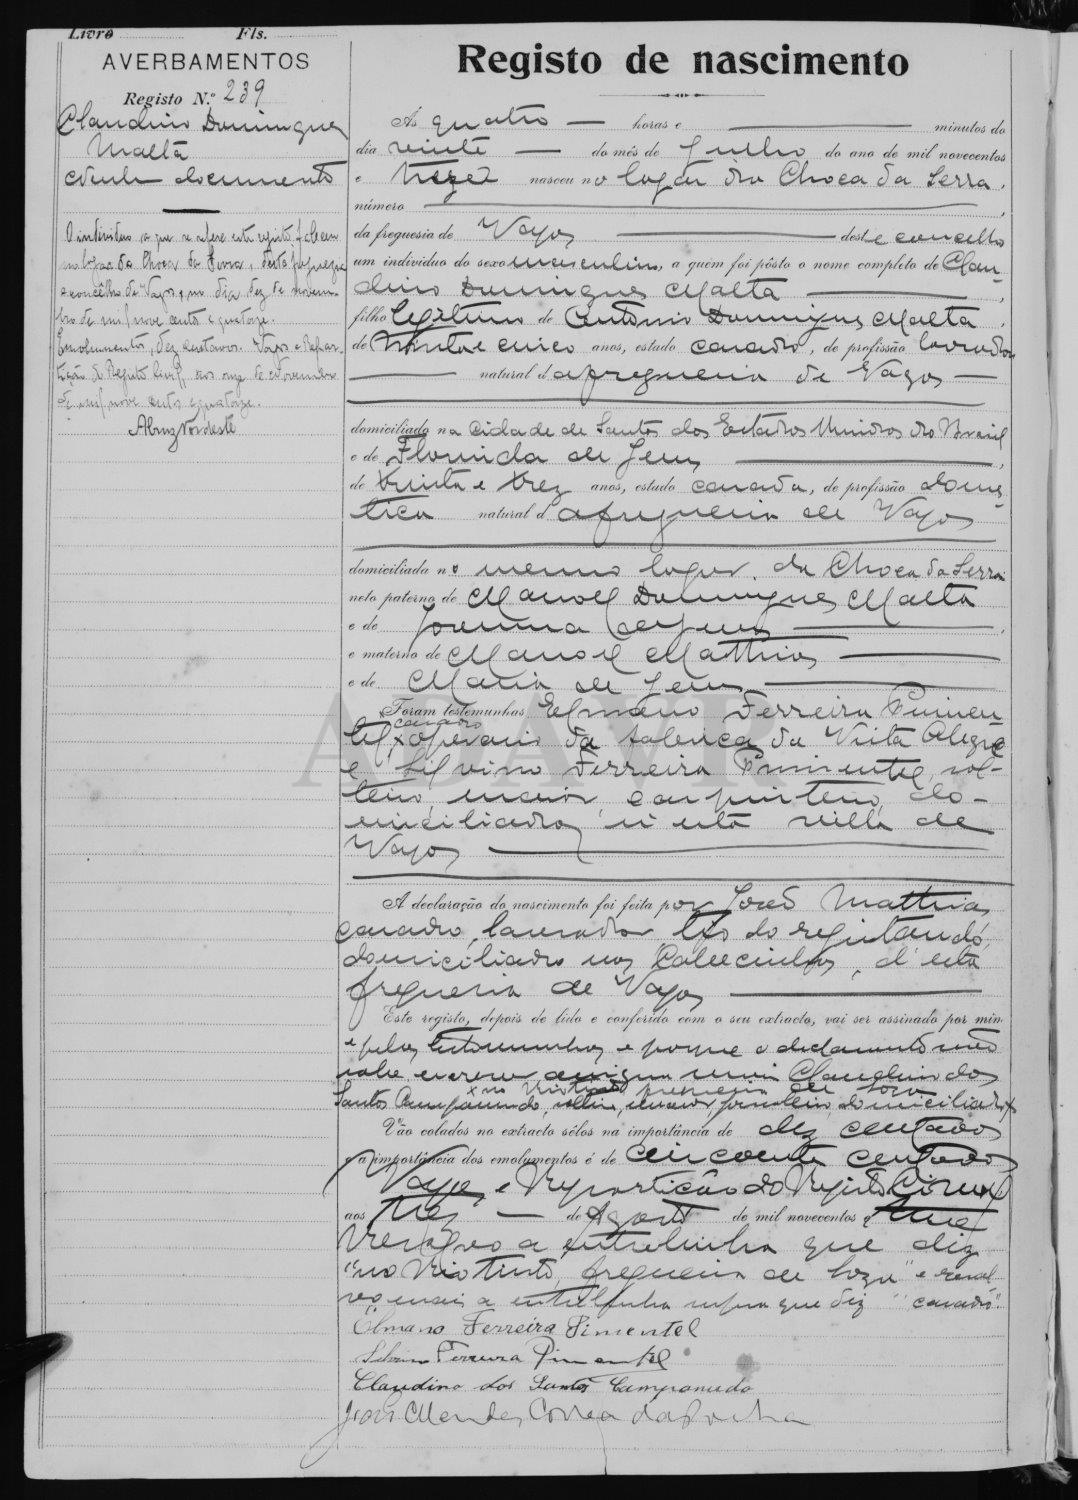 Livro Fls.
AVERBAMENTOS
Registo N.º 239
Claudino Domingues
Malta
documento
O individuo a que se refere este registo faleceu
no logar da Choca da Serra, desta freguezia
e concelho de Vagos, no dia dez de novem-
bro de mil nove centos e quatorze.
Emolumentos, dez centavos. Vagos e Repar-
tição do Registo Civil, aos onze de Novembro
de mil nove centos e quatorze.
Registo de nascimento
Ás quatro — horas e — minutos do
dia vinte — do mês de Julho do ano de mil novecentos
e treze nasceu no logar da Choca da Serra,
número
da freguesia de Vagos — deste concelho
um indivíduo do sexo masculino, a quem foi pôsto o nome completo de Clau-
dino Domingues Malta —,
filho legitimo de Antonio Domingues Malta,
de trinta e cinco anos, estado casado, de profissão lavrador
— natural da freguesia de Vagos —
domiciliado na cidade de Santos dos Estados Unidos do Brazil
e de Florinda de Jesus —,
de trinta e trez anos, estado casada, de profissão domes-
tica natural da freguesia de Vagos
domiciliada no mesmo logar da Choca da Serra
neto paterno de Manoel Domingues Malta
e de Joanna de Jesus —,
e materno de Manoel Mathias —
e de Maria de Jesus —
Foram testemunhas Elmano Ferreira Pimen-
casado
tel, x operario da fabrica da Vista Alegre
e Silvino Ferreira Pimentel, sol-
teiro, maior, carpinteiro, do-
miciliados n'esta villa de
Vagos —
A declaração do nascimento foi feita por João Mathias,
casado, lavrador tio do registando,
domiciliado nos Cabecinhos, d'esta
freguesia de Vagos —
Este registo, depois de lido e conferido com o seu extracto, vai ser assinado por mim
e pelas testemunhas e porque o declarante não
sabe escrever assigna Claudino dos
x no Rio Tinto freguesia de Soza
Santos Campanudo, solteiro, maior, jornaleiro domiciliado x
Vão colados no extracto sêlos na importância de dez centavos
e a importância dos emolumentos é de cincoenta centavos
Vagos, e Repartição do Registo Civil
aos trez — de Agosto de mil novecentos e treze
Resalvo a entrelinha que diz
"no Rio Tinto, freguesia de Soza" e resal-
vo mais a entrelinha supra que diz "casado".
Elmano Ferreira Pimentel
Silvino Ferreira Pimentel
Claudino dos Santos Campanudo
João Mendes Correa da Rocha